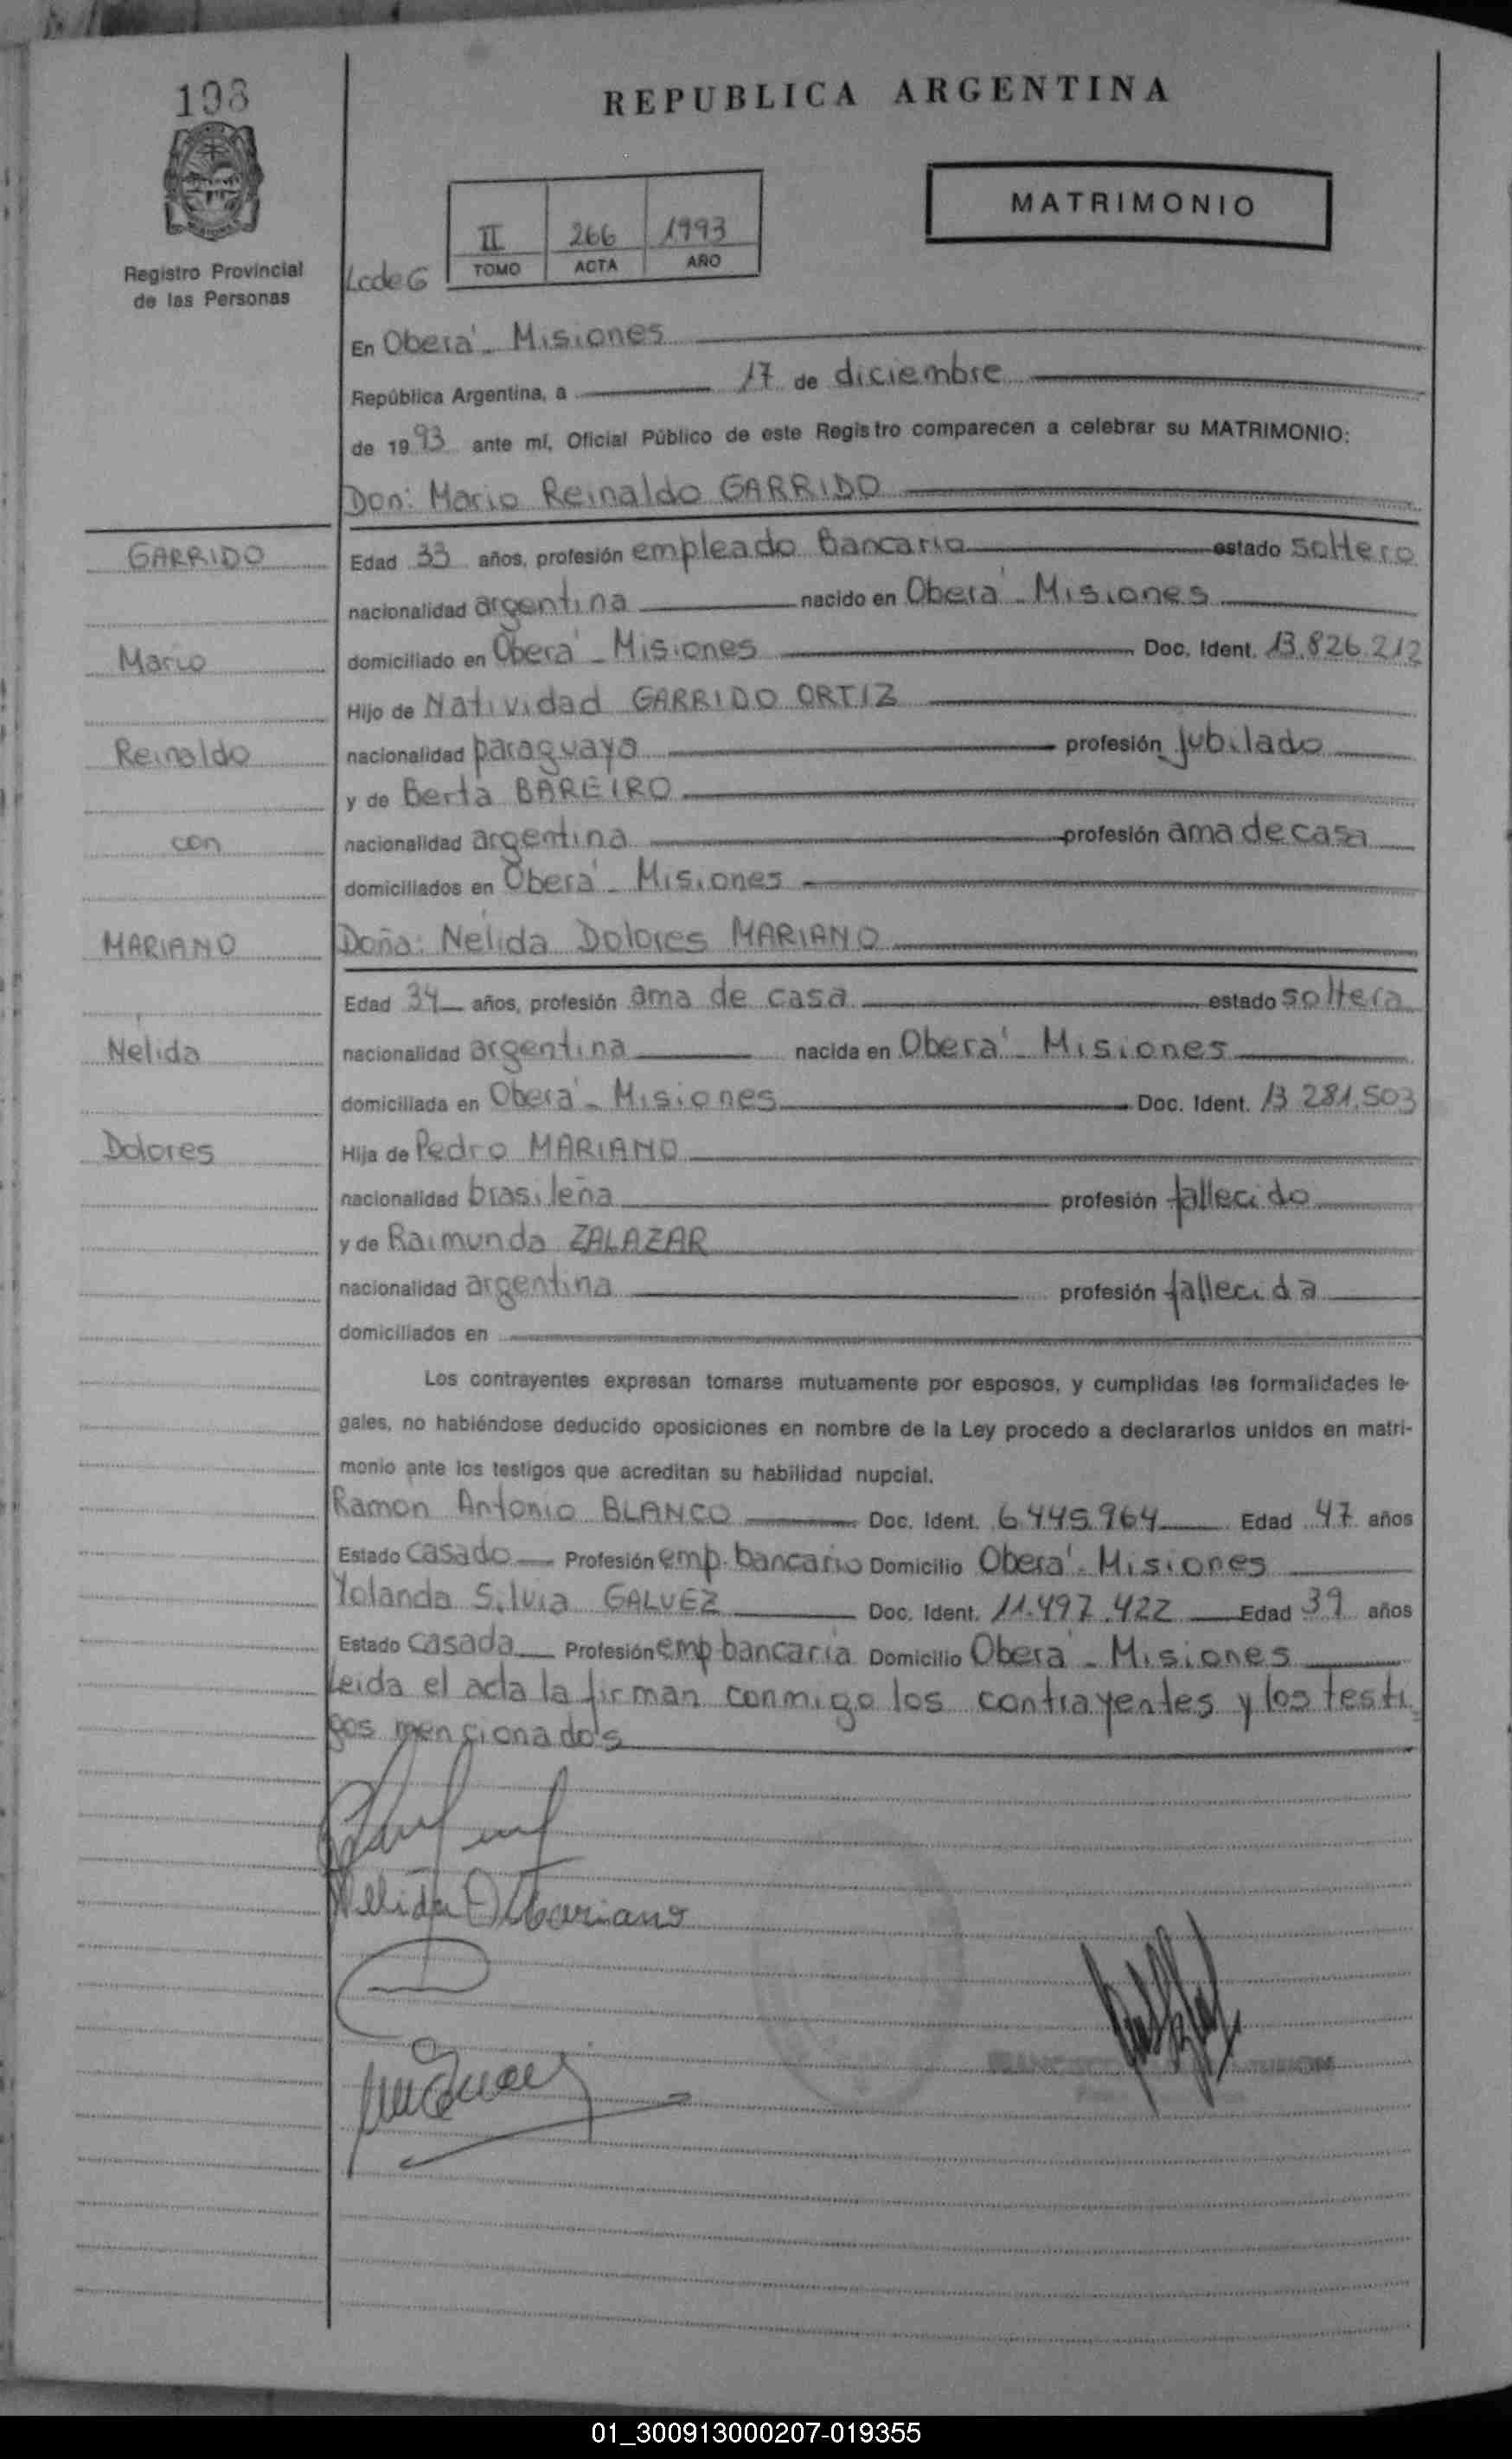 198
REPUBLICA ARGENTINA
MATRIMONIO
II 266 1993
TOMO ACTA AÑO
Registro Provincial
de las Personas
LcdeG
En Oberá - Misiones
República Argentina, a 17 de diciembre
de 1993 ante mí, Oficial Público de este Registro comparecen a celebrar su MATRIMONIO:
Don: Mario Reinaldo GARRIDO
GARRIDO
Edad 33 años, profesión empleado Bancario estado soltero
nacionalidad argentina nacido en Oberá - Misiones
Mario
domiciliado en Oberá - Misiones Doc. Ident. 13.826.212
Hijo de Natividad GARRIDO ORTIZ
Reinaldo
nacionalidad paraguaya profesión jubilado
y de Berta BAREIRO
con
nacionalidad argentina profesión ama de casa
domiciliados en Oberá - Misiones
MARIANO
Doña: Nélida Dolores MARIANO
Edad 34 años, profesión ama de casa estado soltera
Nélida
nacionalidad argentina nacida en Oberá - Misiones
domiciliada en Oberá - Misiones Doc. Ident. 13.281.503
Dolores
Hija de Pedro MARIANO
nacionalidad brasileña profesión fallecido
y de Raimunda ZALAZAR
nacionalidad argentina profesión fallecida
domiciliados en
Los contrayentes expresan tomarse mutuamente por esposos, y cumplidas las formalidades le-
gales, no habiéndose deducido oposiciones en nombre de la Ley procedo a declararlos unidos en matri-
monio ante los testigos que acreditan su habilidad nupcial.
Ramon Antonio BLANCO Doc. Ident. 6.445.964 Edad 47 años
Estado casado Profesión emp. bancario Domicilio Oberá - Misiones
Yolanda Silvia GALVEZ Doc. Ident. 11.497.422 Edad 39 años
Estado casada Profesión emp bancaria Domicilio Oberá - Misiones
Leida el acta la firman conmigo los contrayentes y los testi
gos mencionados
Nelida D Mariano
01_300913000207-019355